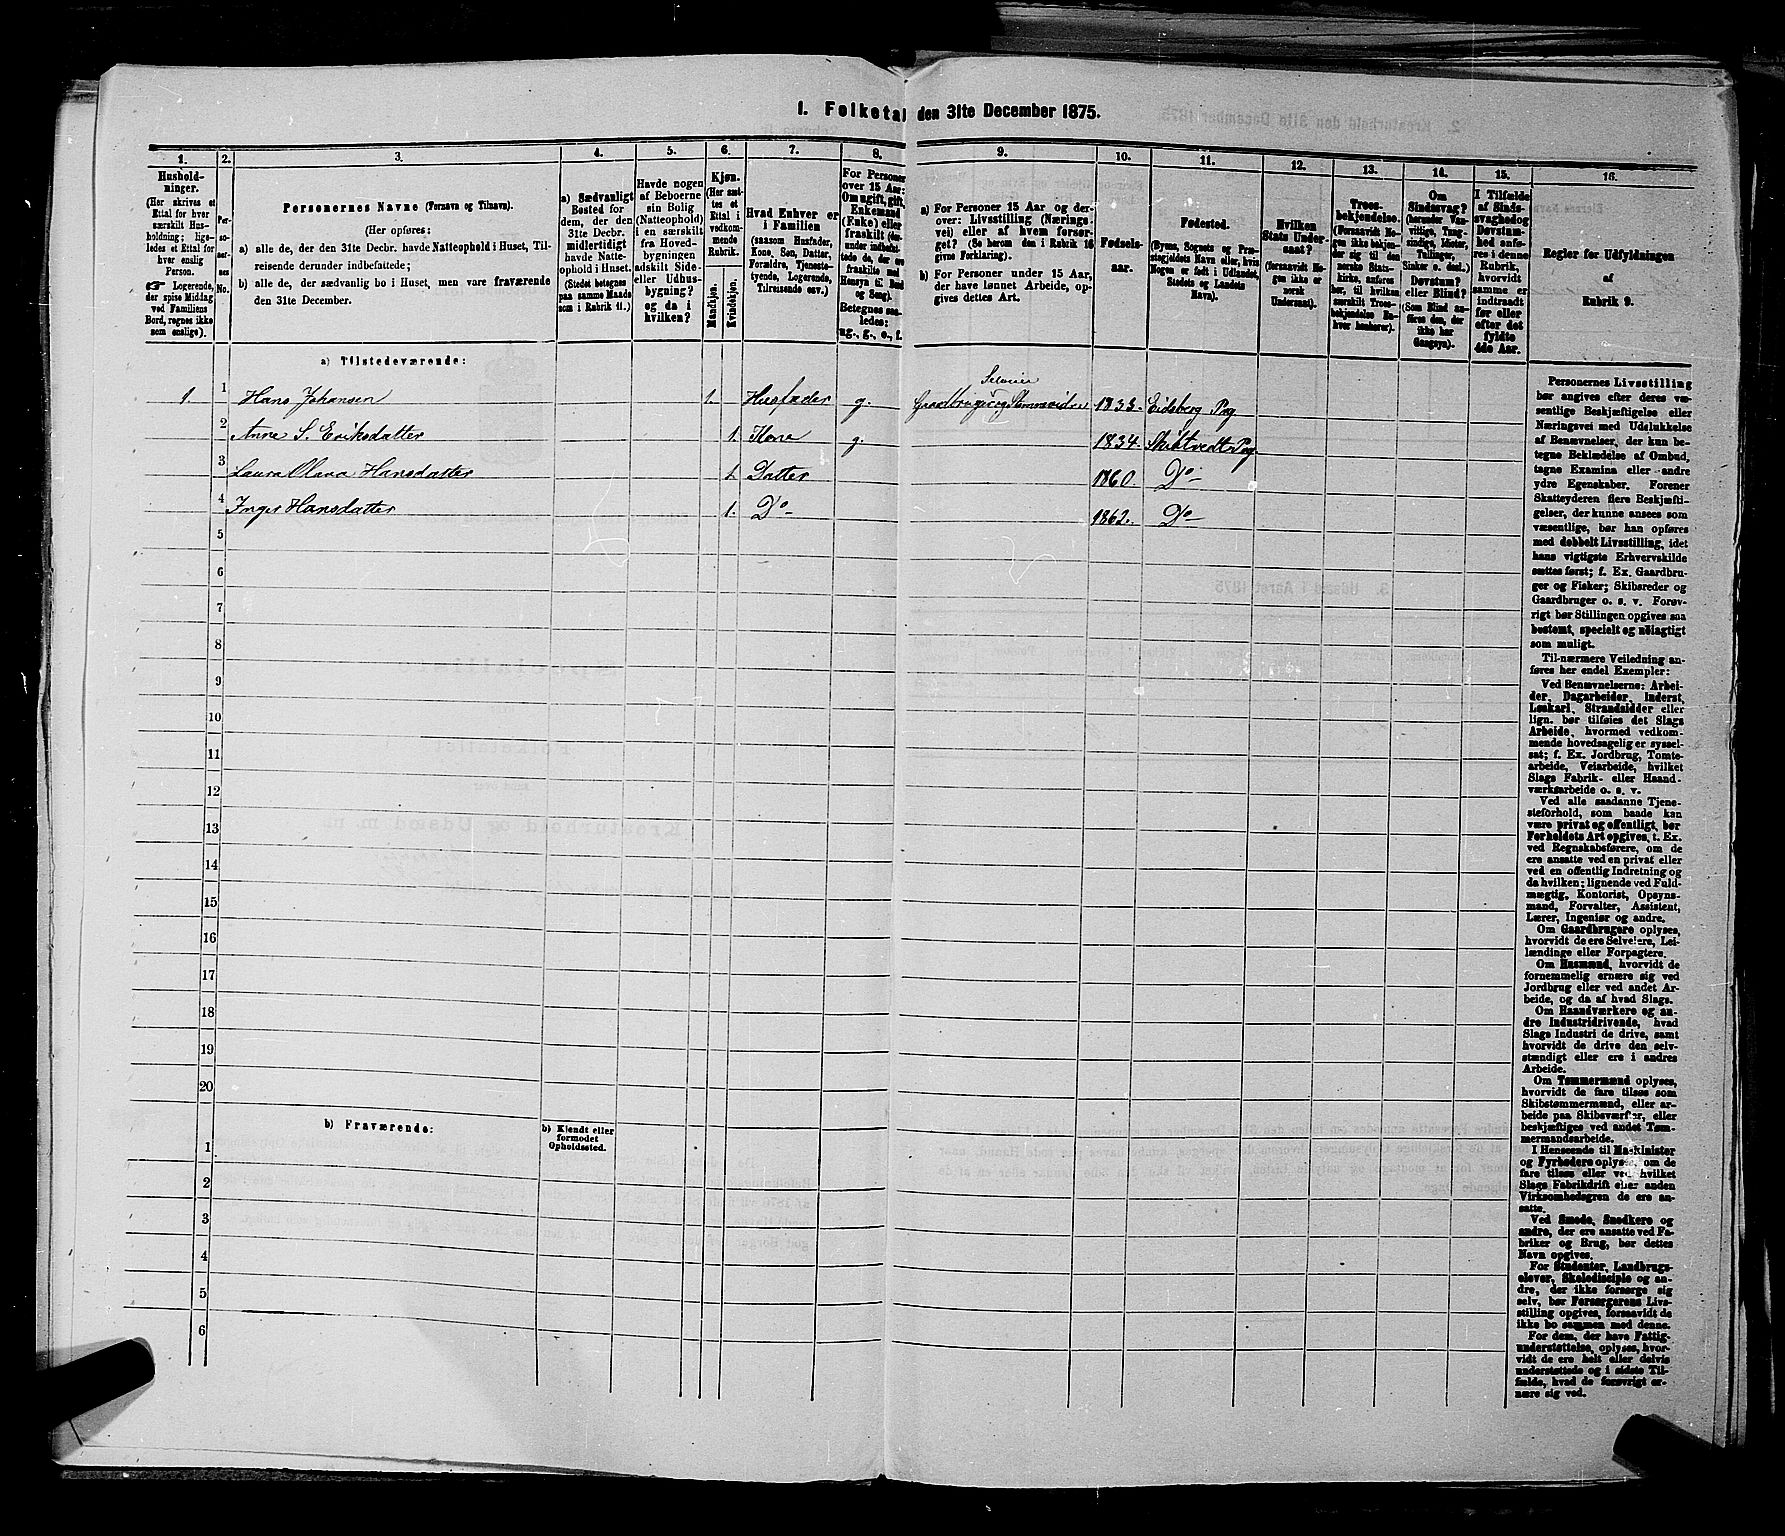 1. Folketal den 31te December 1875.
1. 2. 3. 4. 5. 6. 7. 8. 9. 10. 11. 12. 13. 14. 15. 16.
Hushold-
ninger.
(Her skrives et
Ettal for hver
særskilt Hus-
holdning; lige-
ledes et Ettal for
hver enslig
Person.
Logerende,
der spise Middag
ved Familiens
Bord, regnes ikke
som enslige).
Per-
so-
ner-
nes
No.
Personernes Navne (Fornavn og Tilnavn).
(Her opføres:
a) alle de, der den 31te Decbr. havde Natteophold i Huset, Til-
reisende derunder indbefattede;
b) alle de, der sædvanlig bo i Huset, men vare fraværende
den 31te December.
a) Sædvanligt
Bosted for
dem, der den
31te Decbr.
midlertidigt
havde Natte-
ophold i Huset.
(Stedet betegnes
paa samme Maade
som i Rubrik 11.)
Havde nogen
af Beboerne
sin Bolig
(Natteophold)
i en særskilt
fra Hoved-
bygningen
adskilt Side-
eller Udhus-
bygning?
og da
hvilken?
Kjøn.
(Her sæt-
tes et
Ettal i
vedkom-
mende
Rubrik.
Mandkjøn.
Kvindekjøn.
Hvad Enhver er
i Familien
(saasom Husfader,
Kone, Søn, Datter,
Forældre, Tjeneste-
tyende, Logerende,
Tilreisende osv.)
For Personer
over 15 Aar:
Om ugift, gift,
Enkemand
(Enke) eller
fraskilt (der-
under indbefat-
tede de, der ere
fraskilte med
Hensyn til Bord
og Seng).
Betegnes saa-
ledes:
ug., g., e., f.
a) For Personer over 15 Aar og der-
over: Livsstilling (Nærings-
vei) eller af hvem forsør-
get? (Se herom den i Rubrik 16
givne Forklaring).
b) For Personer under 15 Aar,
der have lønnet Arbeide, op-
gives dettes Art.
Fødsels-
aar.
Fødested.
(Byens, Sognets og Præ-
stegjeldets Navn eller, hvis
Nogen er født i Udlandet,
Stedets og Landets
Navn).
Hvilken
Stats Under-
saat?
(forsaavidt No-
gen ikke er
norsk
Undersaat).
Troes-
bekjendelse.
(Forsaavidt No-
gen ikke bekjen-
der sig til den
norske Stats-
kirke, anføres
her, til hvilken
særskilt Troes-
bekjendelse En-
hver henhører).
Om
Sindssvag?
(herunder Van-
vittige, Tung-
sindige, Idioter,
Tullinger,
Sinker o. desl.)
Døvstum?
eller Blind?
(Som Blind an-
føres den, der
ikke har
Gangsyn).
I Tilfælde
af Sinds-
svaghed og
Døvstum-
hed anfø-
res i denne
Rubrik,
hvorvidt
samme er
indtraadt
før eller
efter det
fyldte
4de Aar.
Regler for Udfyldningen
af
Rubrik 9.
a) Tilstedeværende:
1. 1 Hans Johansen 1. Husfader g. Gaardbruger og Selveier 1833. Eidsberg Pg.
2 Anne S. Eriksdatter 1. Kone g. 1834. Skibtvedt Pg.
3 Laura Olava Hansdatter 1. Datter 1860. Do
4 Inger Hansdatter 1. Do 1862. Do
5
6
7
8
9
10
11
12
13
14
15
16
17
18
19
20
b) Fraværende:
b) Kjendt eller
formodet
Opholdssted.
1
2
3
4
5
6
Personernes Livsstilling
bør angives efter deres væ-
sentlige Beskjæftigelse eller
Næringsvei med Udelukkelse
af Benævnelser, der kun be-
tegne Beklædelse af Ombud,
tagne Examina eller andre
ydre Egenskaber. Forener
Skatteyderen flere Beskjæfti-
gelser, der kunne ansees som
væsentlige, bør han opføres
med dobbelt Livsstilling, idet
hans vigtigste Erhvervskilde
sættes først; f. Ex. Gaardbru-
ger og Fisker; Skibsreder og
Gaardbruger o. s. v. Forøv-
rigt bør Stillingen opgives saa
bestemt, specielt og nøiagtigt
som muligt.
Til nærmere Veiledning an-
føres her endel Exempler:
Ved Benævnelserne: Arbei-
der, Dagarbeider, Inderst,
Løskarl, Strandsidder eller
lign. bør tilføies det Slags
Arbeide, hvormed vedkom-
mende hovedsagelig er syssel-
sat; f. Ex. Jordbrug, Tomte-
arbeide, Veiarbeide, hvilket
Slags Fabrik- eller Haand-
værksarbeide o. s. v.
Ved alle saadanne Tjene-
steforhold, som baade kan
være privat og offentligt, bør
Forholdets Art opgives, t. Ex.
ved Regnskabsførere, om de
ere ansatte ved en privat eller
ved en offentlig Indretning og
da hvilken; lignende ved Fuld-
mægtig, Kontorist, Opsyns-
mand, Forvalter, Assistent,
Lærer, Ingeniør og andre.
Om Gaardbrugere oplyses,
hvorvidt de ere Selveiere, Lei-
lændinge eller Forpagtere.
Om Husmænd, hvorvidt de
fornemmelig ernære sig ved
Jordbrug eller ved andet Ar-
beide, og da af hvad Slags.
Om Haandværkere og an-
dre Industridrivende, hvad
Slags Industri de drive, samt
hvorvidt de drive den selv-
stændigt eller ere i andres
Arbeide.
Om Tømmermænd oplyses,
hvorvidt de fare tilsøs som
Skibstømmermænd, eller ar-
beide paa Skibsværfter, eller
beskjæftiges ved andet Tøm-
mermandsarbeide.
I Henseende til Maskinister
og Fyrbødere oplyses, om de
fare tilsøs eller ved hvilket
Slags Fabrikdrift eller anden
Virksomhedsgren de ere an-
satte.
Ved Smede, Snedkere og
andre, der ere ansatte ved Fa-
briker og Brug, bør dettes
Navn opgives.
For Studenter, Landbrugs-
elever, Skoledisciple og an-
dre, der ikke forsørge sig
selv, bør Forsørgerens Livs-
stilling opgives, forsaavidt de
ikke bo sammen med denne.
For dem, der have Fattig-
understøttelse, oplyses, hvor-
vidt de ere helt eller delvis
understøttede og i sidste Til-
fælde, hvad de forøvrigt er-
nære sig ved.